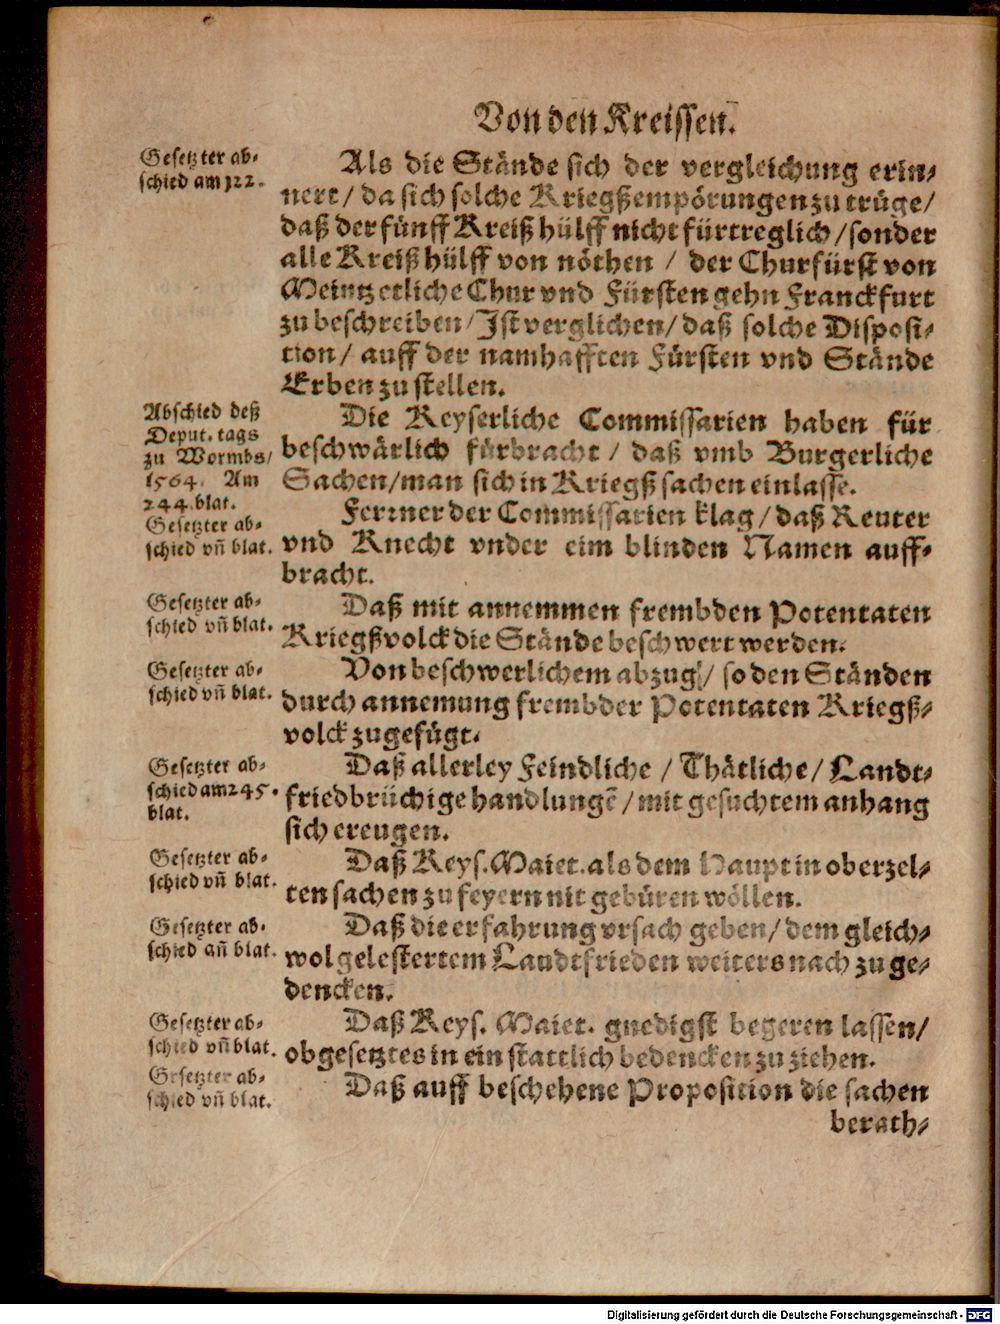 Von den Kreissen.
Gesetzter ab⸗
schied am 122.
Als die Stände sich der vergleichung erin⸗
nert / da sich solche Kriegßempörungen zu trüge /
daß der fünff Kreiß hülff nicht fürtreglich / sonder
alle Kreiß hülff von nöthen / der Churfürst von
Meintz etliche Chur vnd Fürsten gehn Franckfurt
zu beschreiben / Ist verglichen / daß solche Disposi⸗
tion / auff der namhafften Fürsten vnd Stände
Erben zu stellen.
Abschied deß
Deput. tags
zu Wormbs /
1564. Am
244. blat.
Die Keyserliche Commissarien haben für
beschwärlich fürbracht / daß vmb Burgerliche
Sachen / man sich in Kriegß sachen einlasse.
Gesetzter ab⸗
schied vñ blat.
Ferrner der Commissarien klag / daß Reuter
vnd Knecht vnder eim blinden Namen auff⸗
bracht.
Gesetzter ab⸗
schied vñ blat.
Daß mit annemmen frembden Potentaten
Kriegßvolck die Stände beschwert werden.
Gesetzter ab⸗
schied vñ blat.
Von beschwerlichem abzug / so den Ständen
durch annemung frembder Potentaten Kriegß⸗
volck zugefügt.
Gesetzter ab⸗
schied am 245.
blat.
Daß allerley Feindliche / Thätliche / Landt⸗
friedbrüchige handlungẽ / mit gesuchtem anhang
sich ereugen.
Gesetzter ab⸗
schied vñ blat.
Daß Keys. Maiet. als dem Haupt in oberzel⸗
ten sachen zu feyern nit gebüren wöllen.
Gesetzter ab⸗
schied añ blat.
Daß die erfahrung vrsach geben / dem gleich⸗
wol gelestertem Landtfrieden weiters nach zu ge⸗
dencken.
Gesetzter ab⸗
schied vñ blat.
Daß Keys. Maiet. gnedigst begeren lassen /
obgesetztes in ein stattlich bedencken zu ziehen.
Gesetzter ab⸗
schied vñ blat.
Daß auff beschehene Proposition die sachen
berath⸗
Digitalisierung gefördert durch die Deutsche Forschungsgemeinschaft - DFG